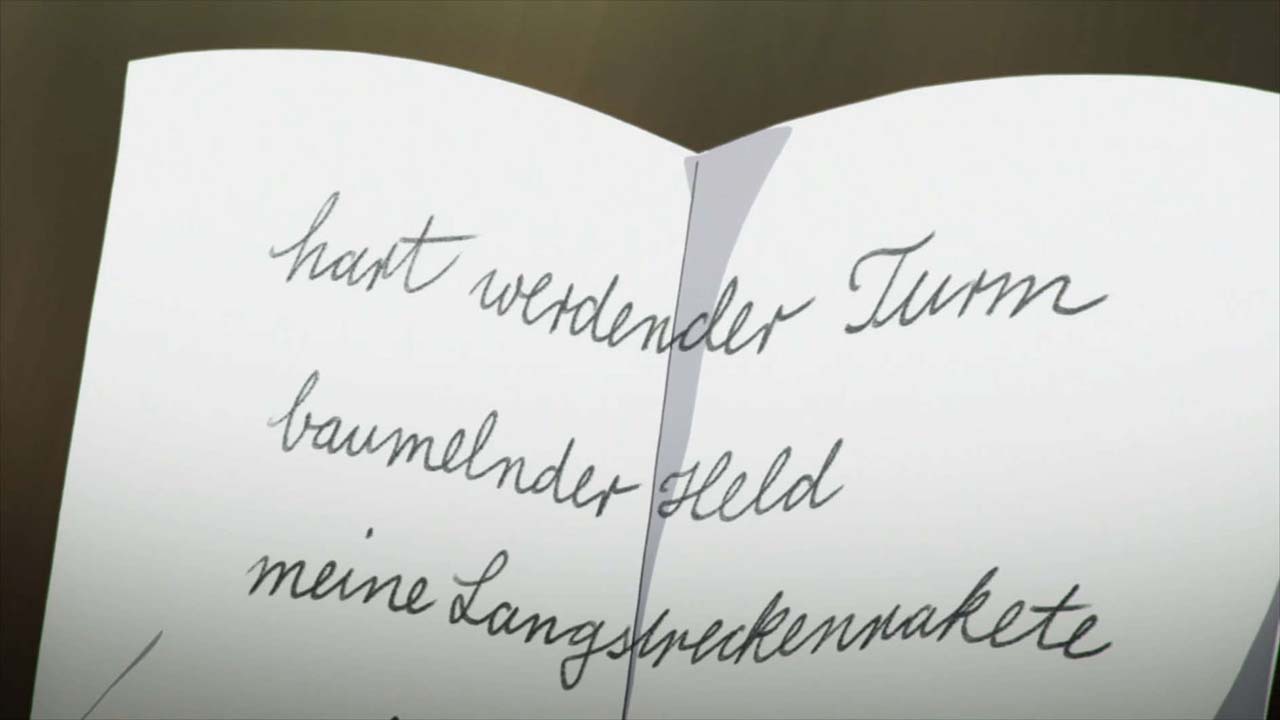 hart werdender Turm
baumelnder Held
meine Langstreckenrakete